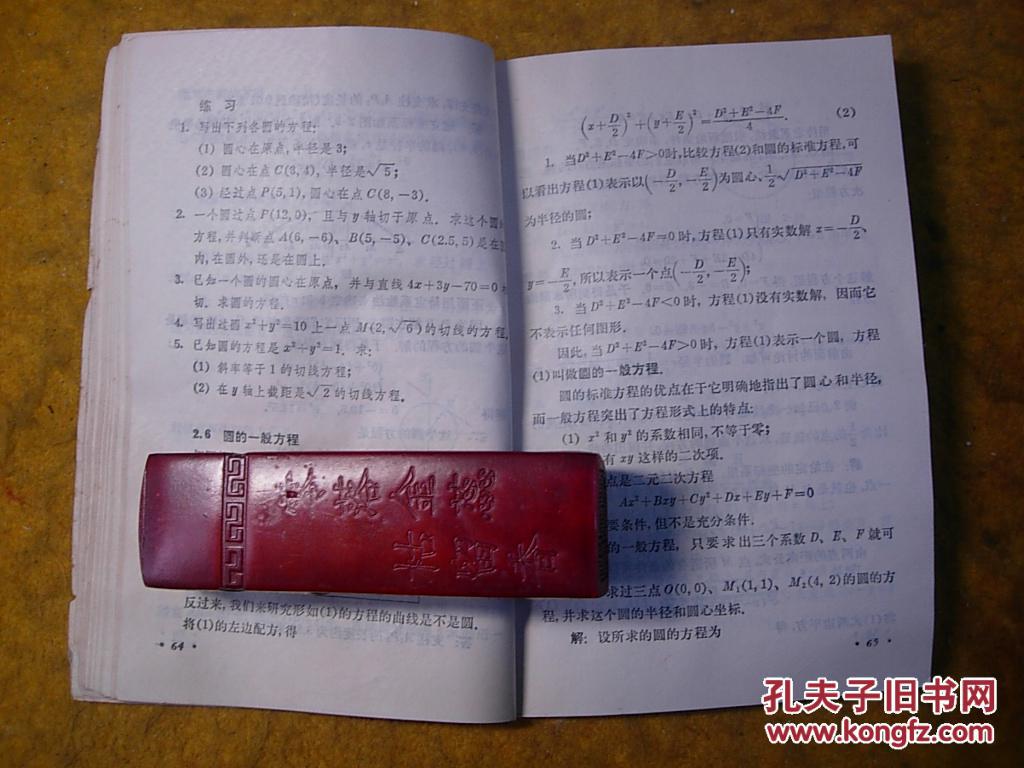 练习
1. 写出下列各圆的方程:
(1) 圆心在原点,半径是3;
(2) 圆心在点C(3,4),半径是√5;
(3) 经过点P(5,1),圆心在点C(8,-3).
2. 一个圆过点P(12,0),且与y轴切于原点. 求这个圆
方程,并判断点A(6,-6)、B(5,-5)、C(2.5,5)是在
内,在圆外,还是在圆上.
3. 已知一个圆的圆心在原点,并与直线4x+3y-70=0
切. 求圆的方程.
4. 写出过圆x²+y²=10上一点M(2,√6)的切线的方程.
5. 已知圆的方程是x²+y²=1. 求:
(1) 斜率等于1的切线方程;
(2) 在y轴上截距是√2的切线方程.
2.6 圆的一般方程
反过来,我们来研究形如(1)的方程的曲线是不是圆.
将(1)的左边配方,得
· 64 ·
(x+D/2)²+(y+E/2)²=(D²+E²-4F)/4. (2)
1. 当D²+E²-4F>0时,比较方程(2)和圆的标准方程,可
以看出方程(1)表示以(-D/2,-E/2)为圆心、1/2√(D²+E²-4F)
为半径的圆;
2. 当D²+E²-4F=0时,方程(1)只有实数解x=-D/2、
y=-E/2,所以表示一个点(-D/2,-E/2);
3. 当D²+E²-4F<0时,方程(1)没有实数解,因而它
不表示任何图形.
因此,当D²+E²-4F>0时,方程(1)表示一个圆,方程
(1)叫做圆的一般方程.
圆的标准方程的优点在于它明确地指出了圆心和半径,
而一般方程突出了方程形式上的特点:
(1) x²和y²的系数相同,不等于零;
有xy这样的二次项.
点是二元二次方程
Ax²+Bxy+Cy²+Dx+Ey+F=0
要条件,但不是充分条件.
的一般方程,只要求出三个系数D、E、F就可
求过三点O(0,0)、M₁(1,1)、M₂(4,2)的圆的方
程,并求这个圆的半径和圆心坐标.
解: 设所求的圆的方程为
· 65 ·
孔夫子旧书网
www.kongfz.com